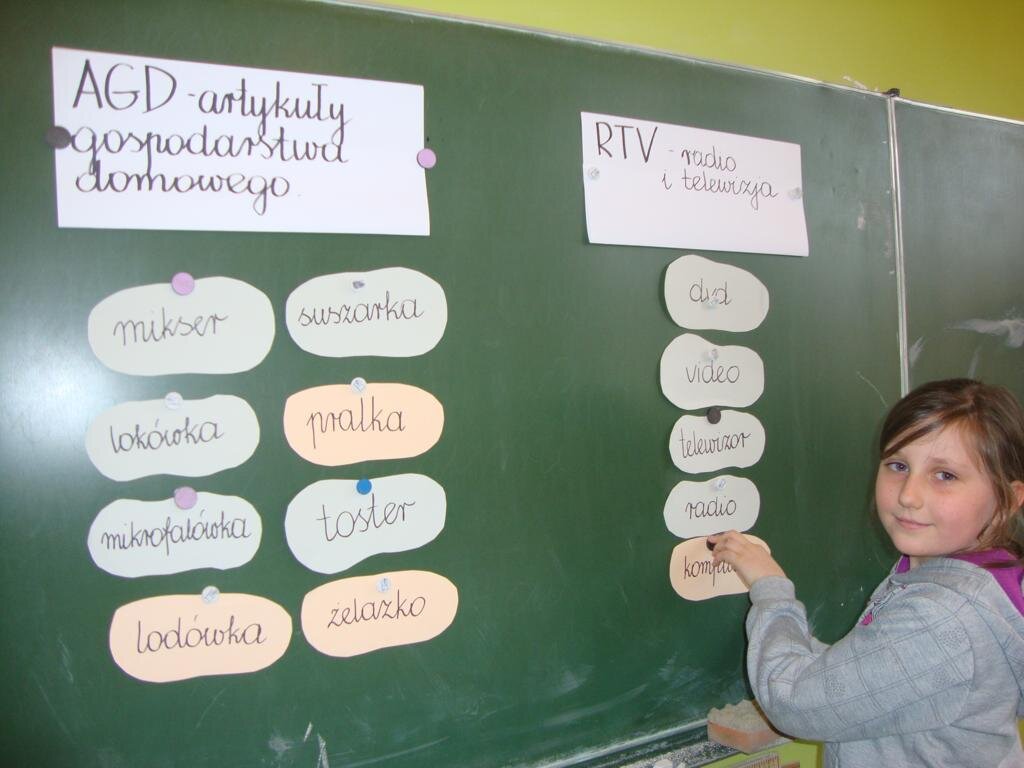 AGD - artykuły
gospodarstwa
domowego.
RTV - radio
i telewizja
mikser
suszarka
lokówka
pralka
mikrofalówka
toster
lodówka
żelazko
dvd
video
telewizor
radio